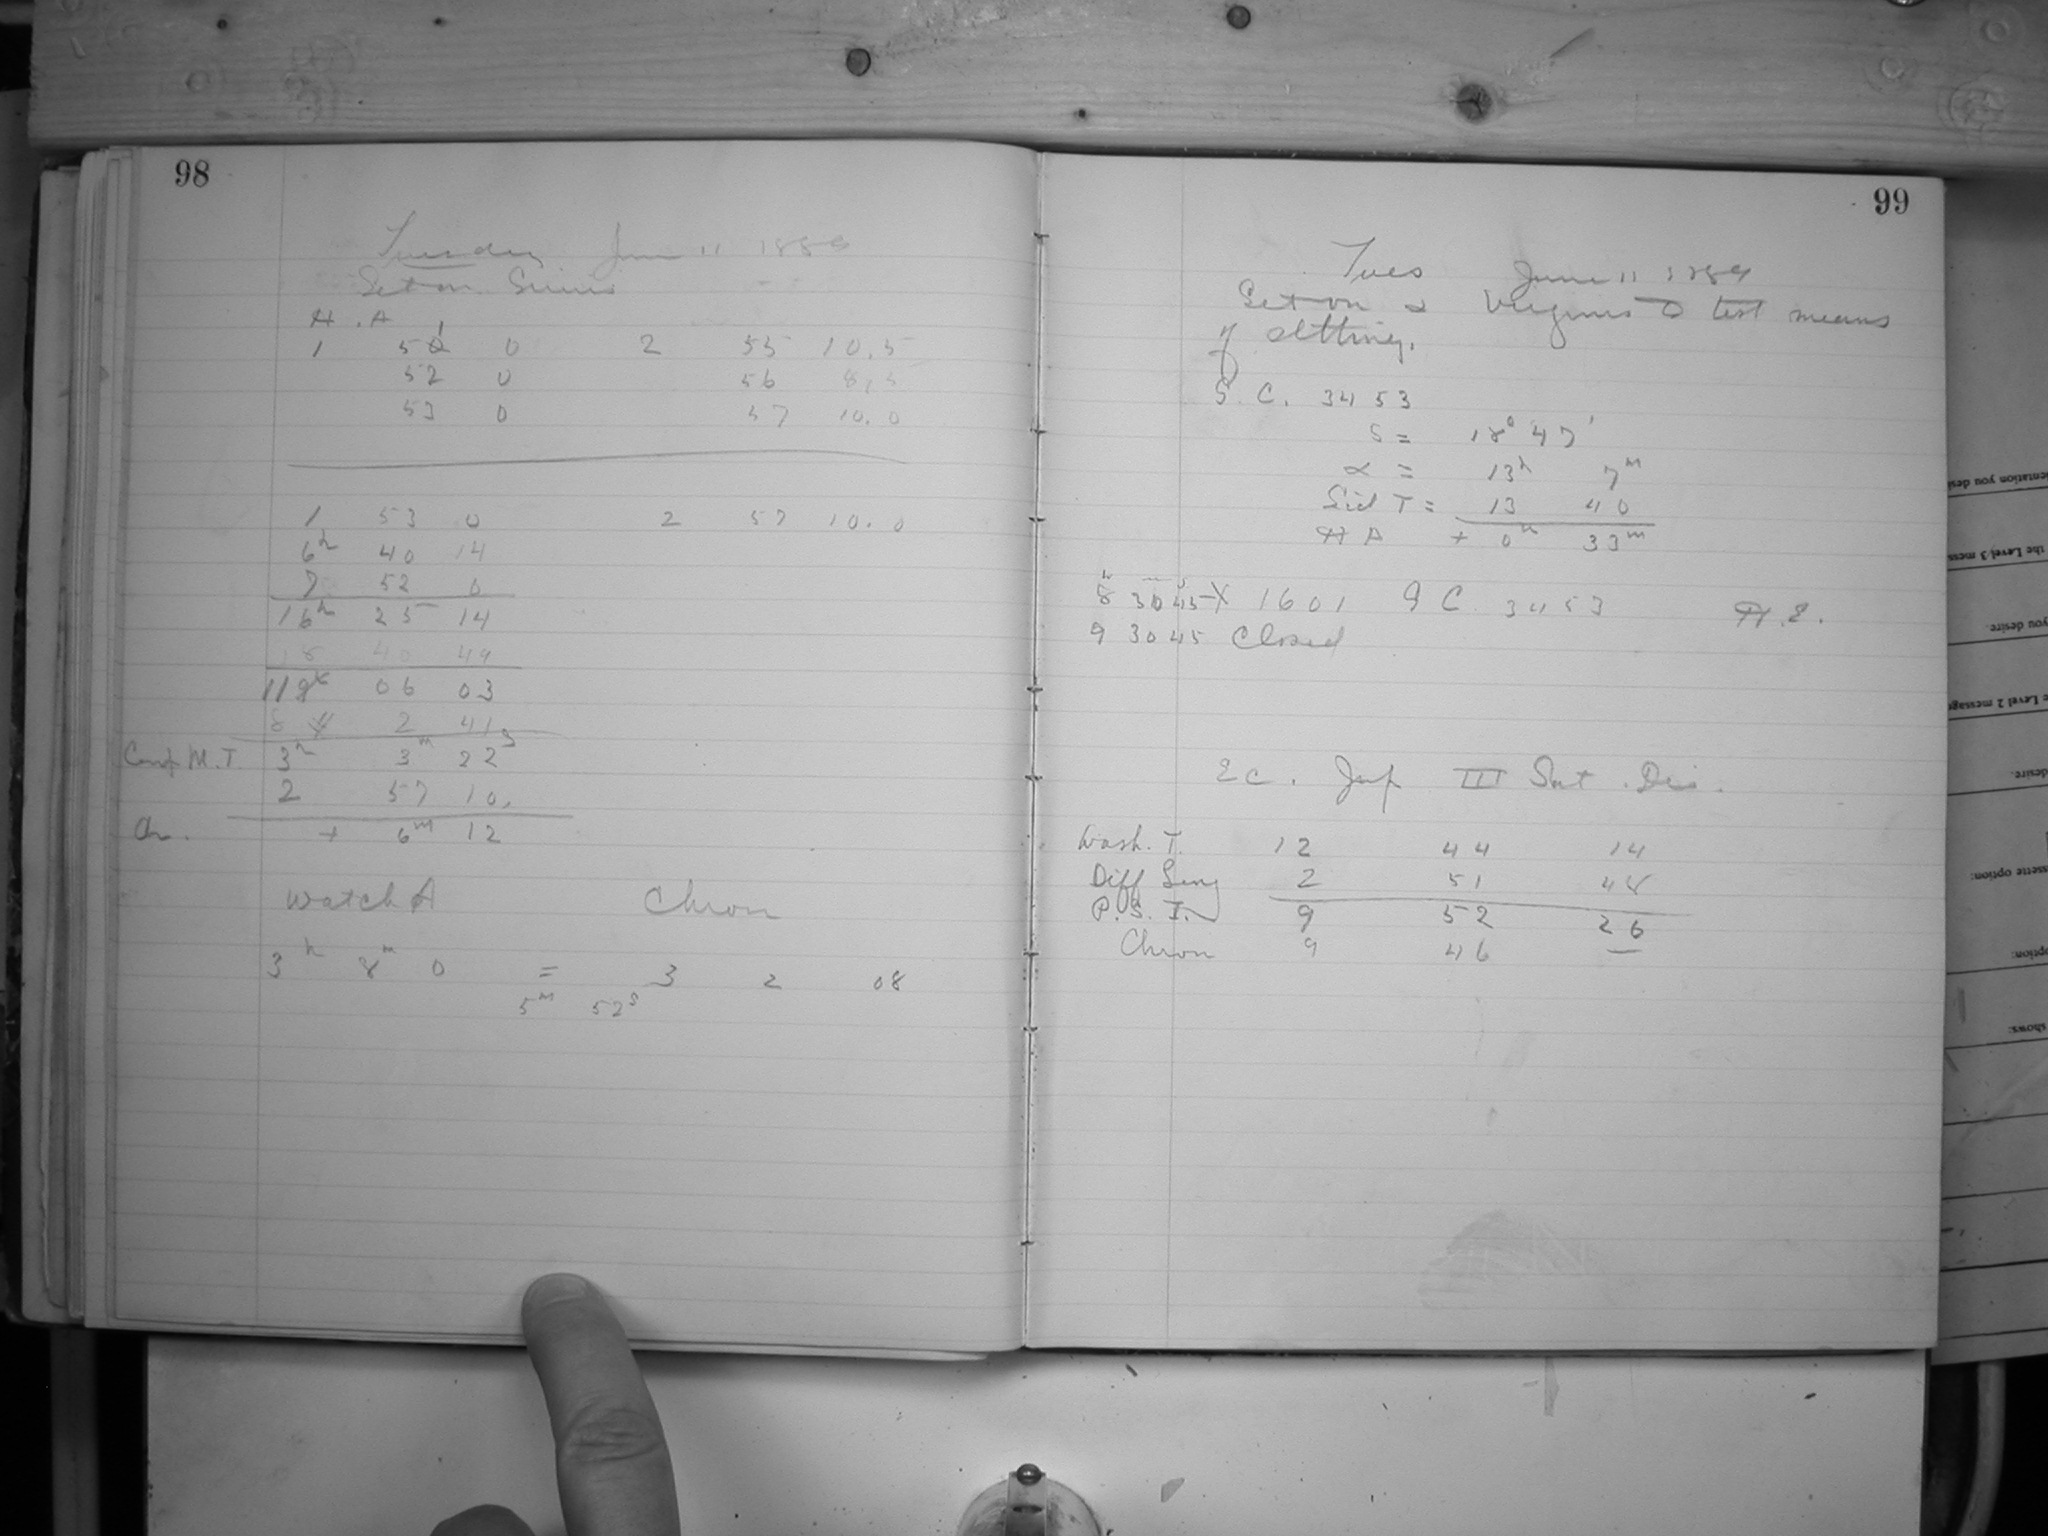 98
Tuesday June 11 1889
Set on Sirius
H.A
1 51 0 2 55 10.5
52 0 56 8.5
53 0 57 10.0
1 53 0 2 57 10.0
6h 40 14
7 52 0
16h 25 14
18 40 49
118 06 03
8 2 41
Camb M.T. 3h 3m 22s
2 57 10.
Ch. + 6m 12
Watch A Chron
3h 8m 0 = 3 2 08
5m 52s
99
Tues June 11 1889
Set on α Virginis to test means
of setting.
S. C. 3453
δ = 18° 47'
α = 13h 7m
Sid T = 13 40
H A + 0h 33m
8h 30m 45s X 1601 G C. 3453
9 30 45 Closed
Ec. Jup III Sat. Dis.
Wash. T. 12 44 14
Diff Long 2 51 48
P.S.T. 9 52 26
Chron 9 46 —
entation you desi
the Level 3 mess
you desire.
e Level 2 message
desire.
ssette option:
option:
shows: